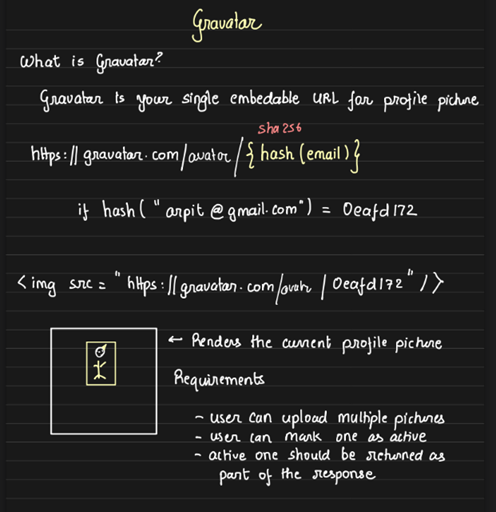 Gravatar
What is Gravatar?
Gravatar is your single embedable URL for profile picture
sha256
https://gravatar.com/avatar/{hash(email)}
if hash("arpit@gmail.com") = 0eafd172
<img src="https://gravatar.com/avatr/0eafd172"/>
← Renders the current profile picture
Requirements
- user can upload multiple pictures
- user can mark one as active
- active one should be returned as
part of the response